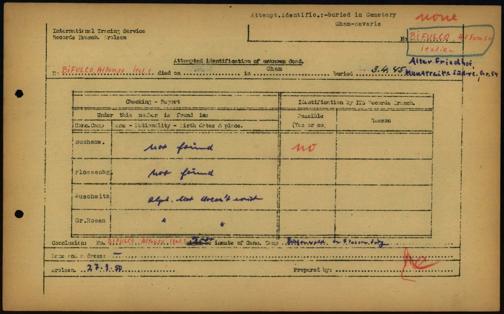 Attempt.Identific.:-buried in Cemetery
Cham-
none
International Tracing Service
Records Branch. Arolsen
No
BIFULCO Alfonso
Italien
Attempted identification of unknown dead.
BIFULCO Alfonso died on in Cham buried 3.4.45
Alter Friedhof,
Checking - Report
Identification by ITS Records Branch.
Under this number is found in:
Possible
(Yes or no)
Reason
Conc.Camp
Name - Nationality - Birth dates & place.
Buchenw.
not found
no
Flossenbg.
not found
Auschwitz
alph. list doesn't exist
Gr.Rosen
" "
Conclusion: No. BIFULCO Alfonso inmate of Conc. Camp Buchenwald or Flossenbürg
Arolsen 27.9.50
Prepared by: